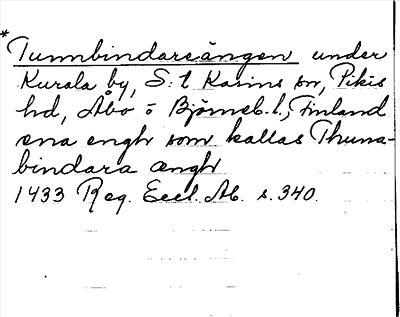 * Tunnbindareängen under
Kurala by, S:t Karins sn, Pikis
hd, Åbo o Björneb. l., Finland
ena engh som kallas Thuna-
bindara ængh
1433 Reg. Eccl. Ab. s. 340.